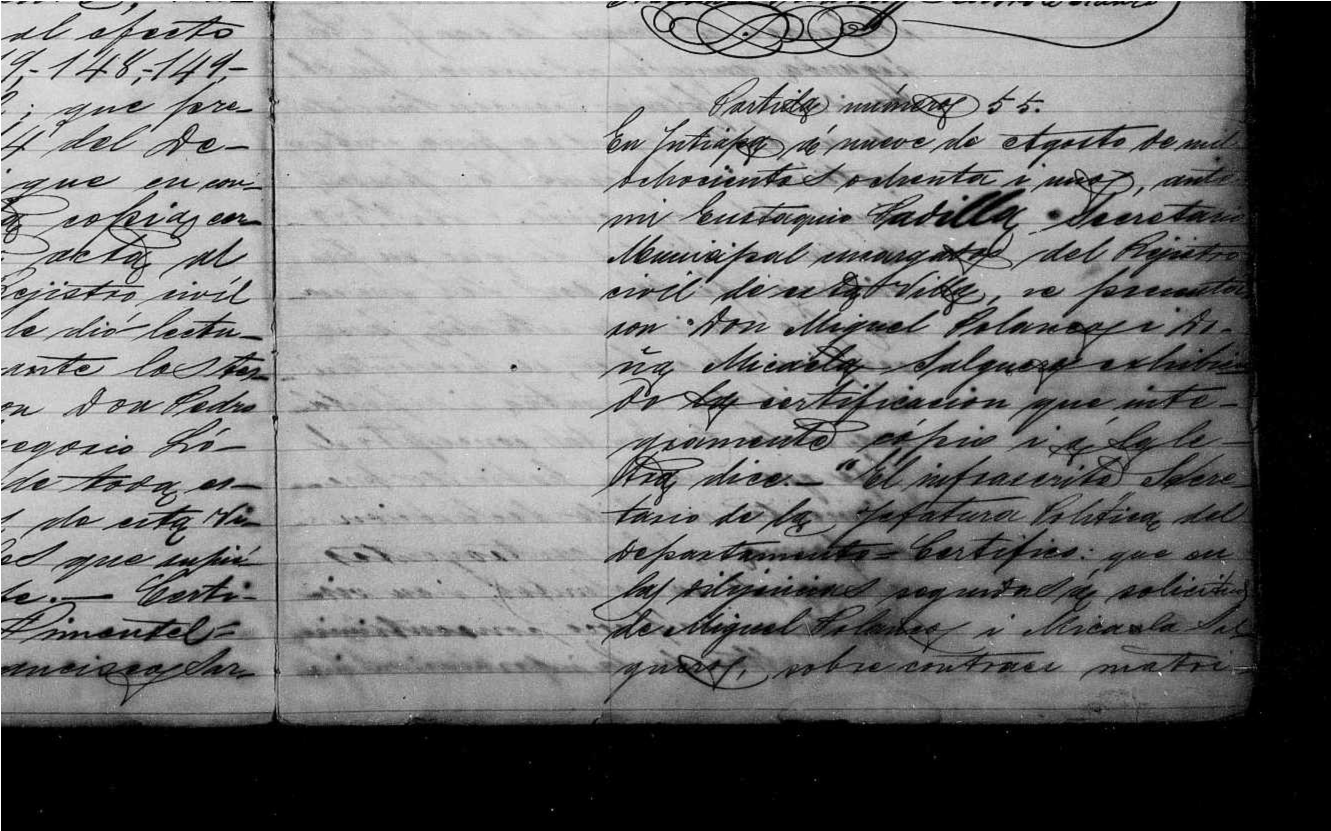 al efecto
9,-148,-149,-
que pre-
4 del De-
que en con-
copia, cer-
acta al
Rejistro civil
le dió lectu-
on Don Pedro
Gregorio Ló-
de toda es-
de esta Vi-
que
te.— Certi-
Pimentel-
Francisco Sar-
Partida número 55.
En Jutiapa, á nueve de Agosto de mil
ochocientos ochenta i uno, ante
mi Eustaquio Padilla Secretario
Municipal encargado del Rejistro
civil de esta Villa, se presenta
ron Don Miguel Polanco i Do-
ña Micaela Salguero exhibien
do la certificacion que inte-
gramente cópio i á la le-
tra dice.— "El infrascrito Secre
tario de la Jefatura Política del
departamento= Certifico: que en
las dilijencias seguidas á solicitud
de Miguel Polanco i Micaela Sal
guero, sobre contraer matri